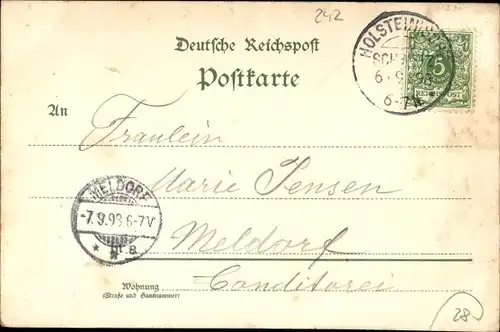 242
Deutsche Reichspost
Postkarte
HOLSTEIN
6 9 98
6-7N
5
REICHSPOST
An
Fräulein
Marie Jensen
MELDORF
-7.9.98.6-7V
** a
Meldorf
Conditorei
Wohnung
(Straße und Hausnummer)
28